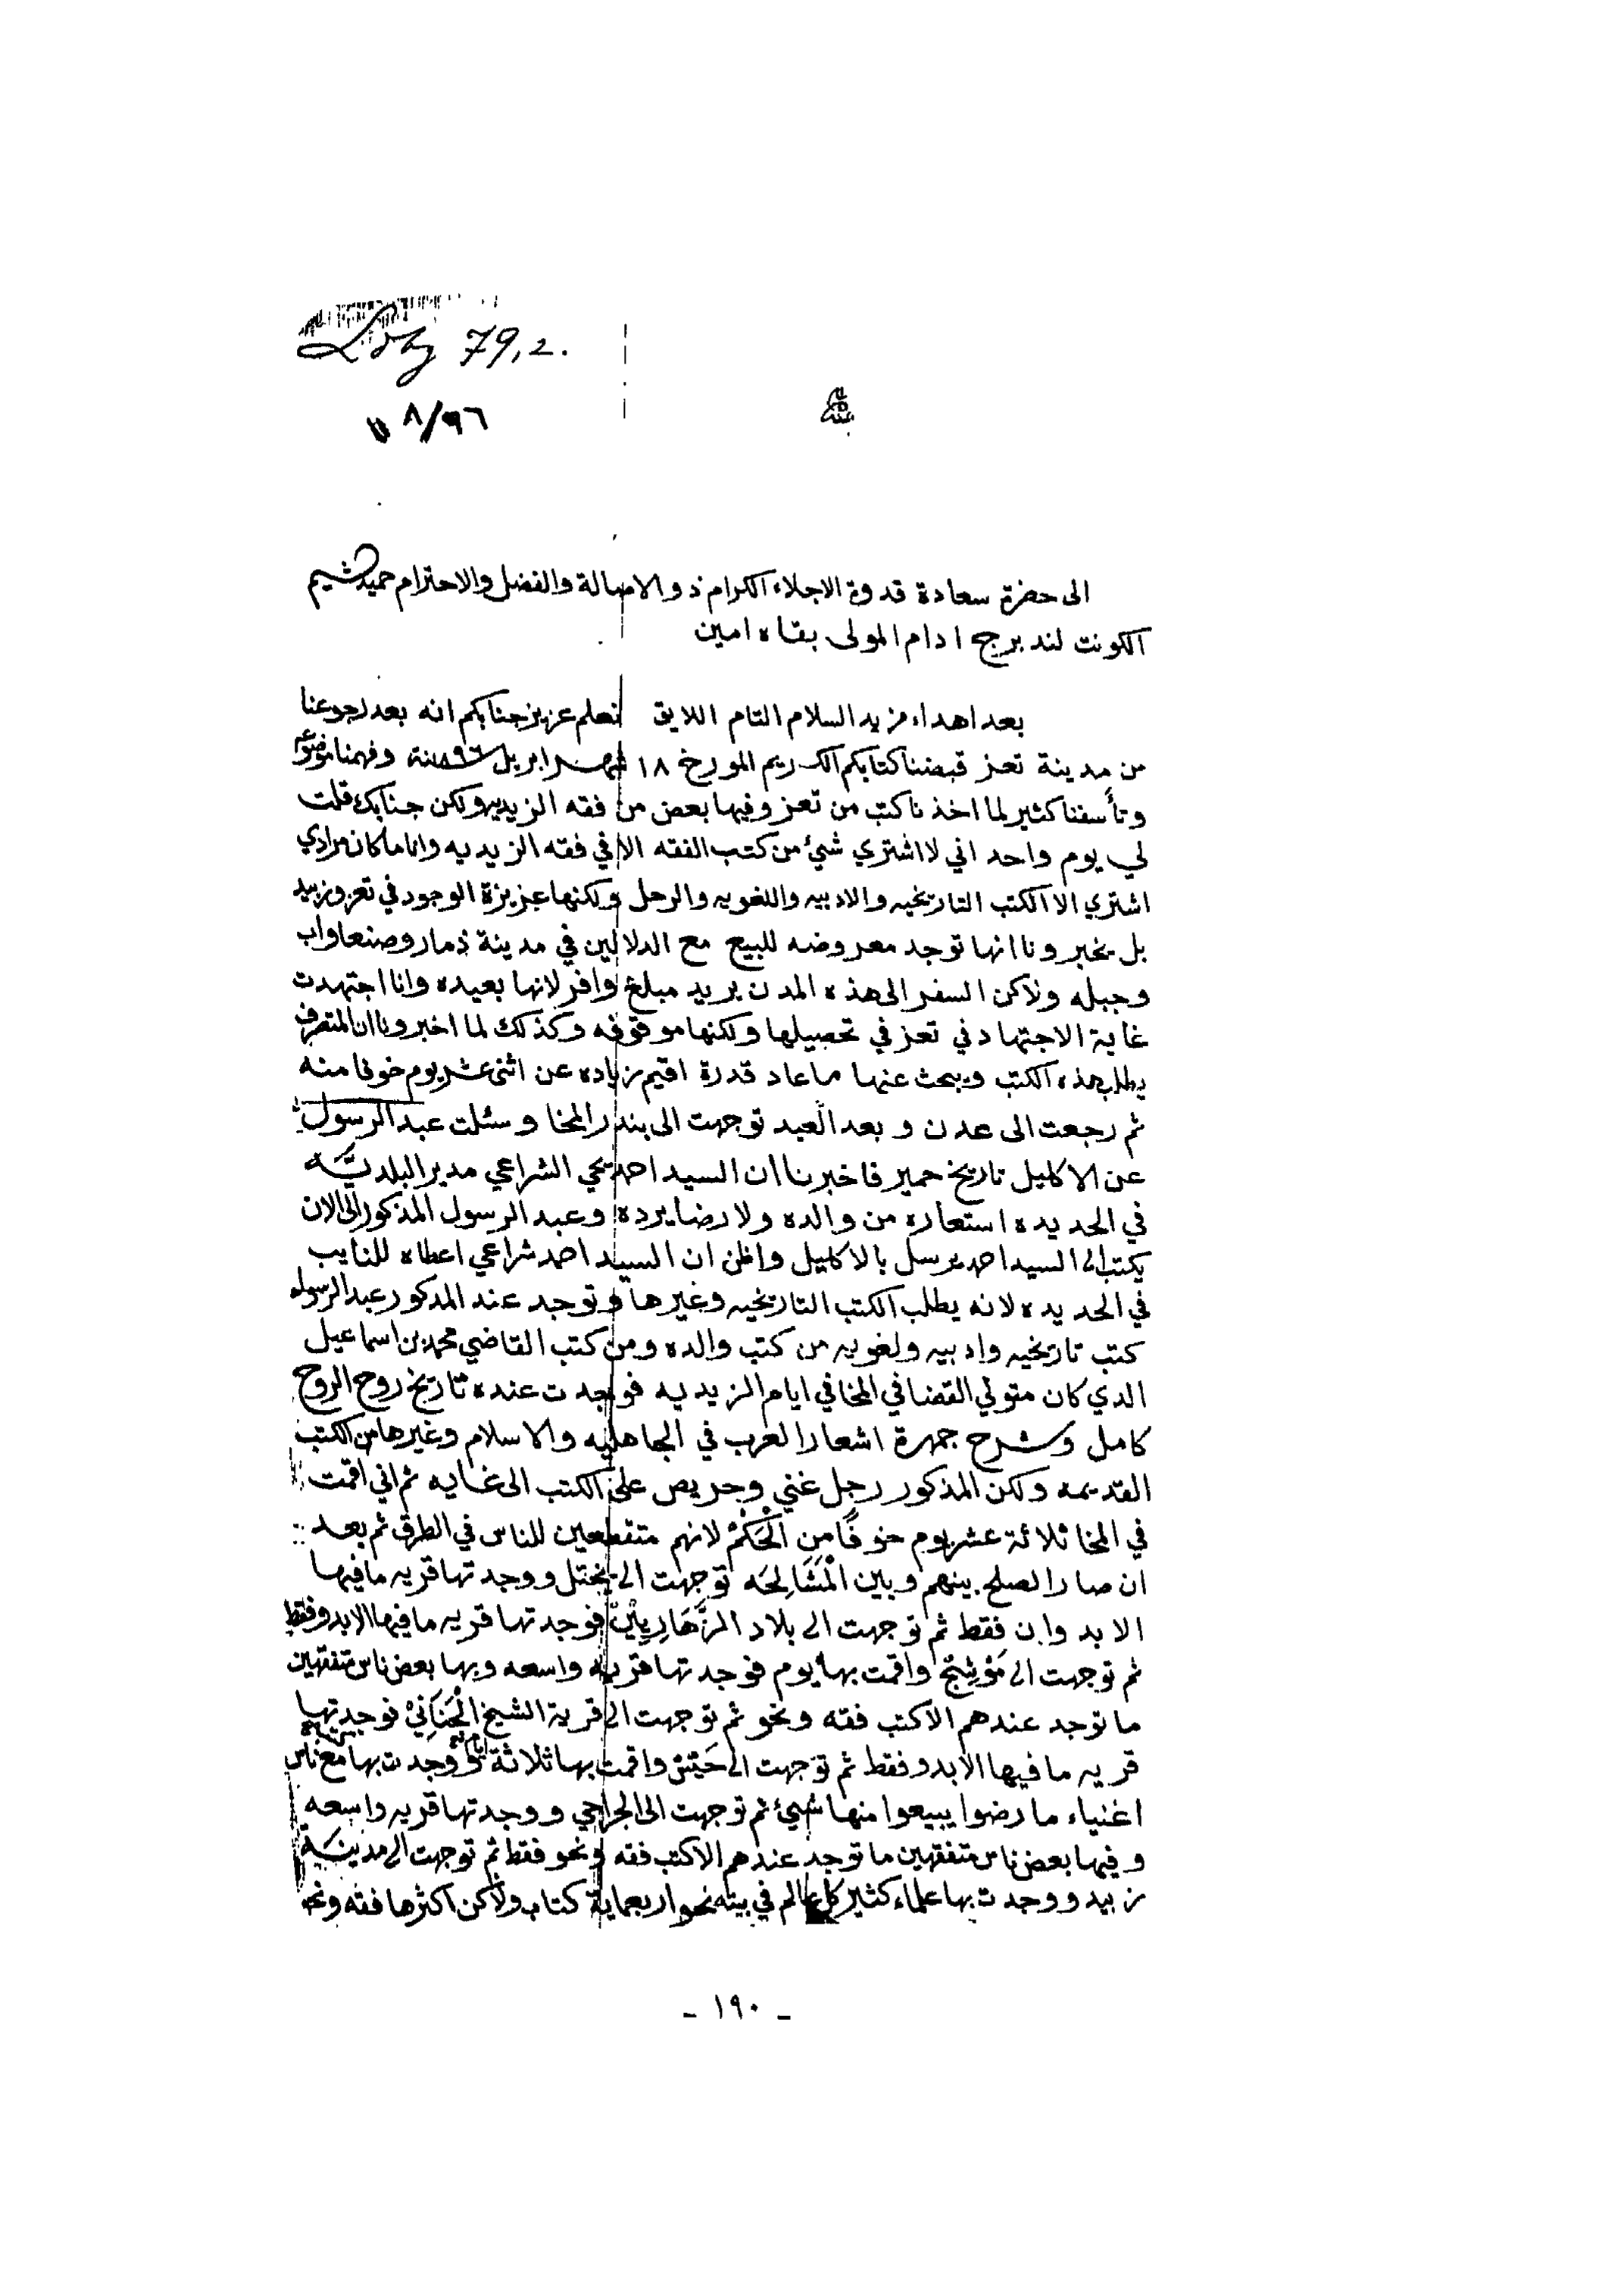 Ldbg 79,2.
٨/٩٦
لله
الى حضرة سعادة قدوة الاجلاء الكرام ذو الاصالة والفضل والاحترام حميد الشيم
الكونت لندبرج ادام المولى بقاه امين
بعد اهداء مزيد السلام التام اللايق نعلم عزيز جنابكم انه بعد رجوعنا
من مدينة تعز قبضنا كتابكم الكريم المورخ ١٨ شهر ابريل سنة ٨٩٦ وفهمنا موضوعه
وتأسفنا كثير لما اخذنا كتب من تعز وفيها بعض من فقه الزيديه ولكن جنابك قلت
لي يوم واحد اني لا اشتري شيء من كتب الفقه الا في فقه الزيديه وانا ما كان مرادي
اشتري الا الكتب التاريخيه والادبيه واللغويه والرحل ولكنها عزيزة الوجود في تعز وزبيد
بل يخبرونا انها توجد معروضه للبيع مع الدلالين في مدينة ذمار وصنعا واب
وجبله ولاكن السفر الى هذه المدن يريد مبلغ وافر لانها بعيده وانا اجتهدت
غاية الاجتهاد في تعز في تحصيلها ولكنها موقوفه وكذلك لما اخبرونا ان المتصرف
يطلب هذه الكتب ويبحث عنها ما عاد قدرة اقيم زياده عن اثنى عشر يوم خوفا منه
ثم رجعت الى عدن وبعد العيد توجهت الى بندر المخا وسئلت عبد الرسول
عن الاكليل تاريخ حمير فاخبرنا ان السيد احمد يحي الشراعي مدير البلديّه
في الحديده استعاره من والده ولا رضا يرده وعبد الرسول المذكور الى الان
يكتب الى السيد احمد يرسل بالاكليل واظن ان السيد احمد شراعي اعطاه للنايب
في الحديده لانه يطلب الكتب التاريخيه وغيرها وتوجد عند المدكور عبد الرسول
كتب تاريخيه وادبيه ولغويه من كتب والده ومن كتب القاضي محمد بن اسماعيل
الدي كان متولي القضا في المخا في ايام الزيديه فوجدت عنده تاريخ روح الروح
كامل وشرح جمهرة اشعار العرب في الجاهليه والاسلام وغيرها من الكتب
القديمه ولكن المذكور رجل غني وحريص على الكتب الى غايه ثم اني اقمت
في المخا ثلاثة عشر يوم خوفًا من الْحَكَمْ لانهم متقطعين للناس في الطرق ثم بعد
ان صار الصلح بينهم وبين الْمَشَالِحَه توجهت الى يختل ووجدتها قريه ما فيها
الا بدوان فقط ثم توجهت الى بلاد الزَّهَارِيِيْن فوجدتها قريه ما فيها الا بدو فقط
ثم توجهت الى مَوْشِجْ واقمت بها يوم فوجدتها قريه واسعه وبها بعض ناس متفقهين
ما توجد عندهم الا كتب فقه ونحو ثم توجهت الى قرية الشيخ الْجَنَاكِيْ فوجدتها
قريه ما فيها الا بدو فقط ثم توجهت الى حَيَسْ واقمت بها ثلاثة ايام ووجدت بها مع ناس
اغنياء ما رضوا يبيعوا منها شيئ ثم توجهت الى الجراحي ووجدتها قريه واسعه
وفيها بعض ناس متفقهين ما توجد عندهم الا كتب فقه ونحو فقط ثم توجهت الى مدينة
زبيد ووجدت بها علماء كثير كل عالم في بيته نحو اربعماية كتاب ولاكن اكثرها فقه ونحو
- ١٩٠ -